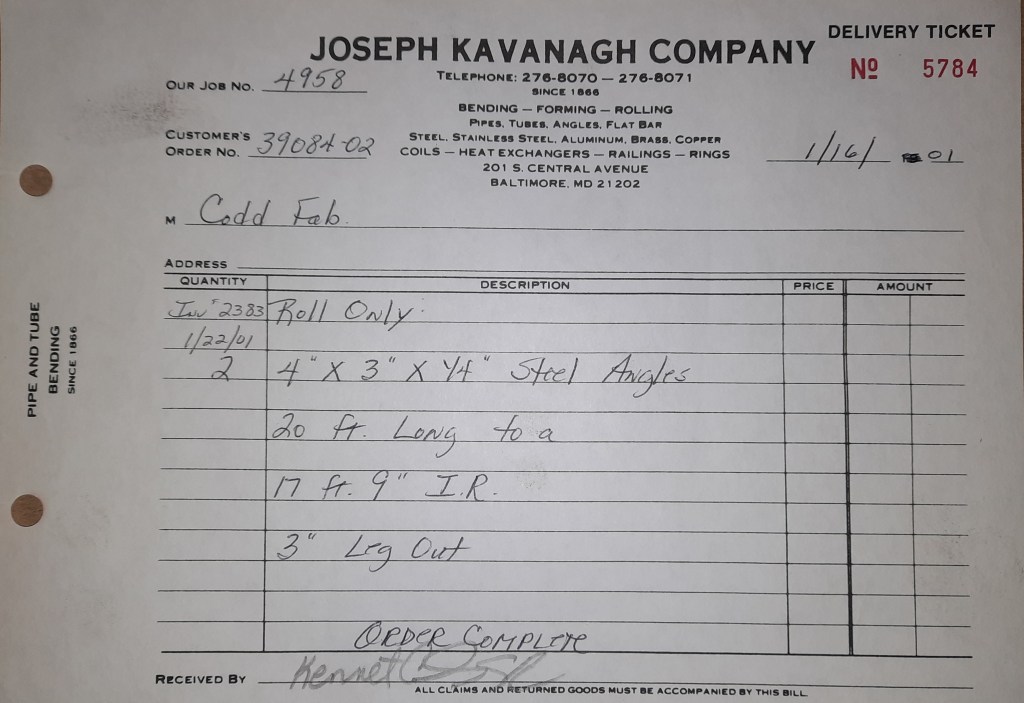 DELIVERY TICKET
JOSEPH KAVANAGH COMPANY
Nº 5784
TELEPHONE: 276-8070 — 276-8071
SINCE 1866
OUR JOB NO. 4958
BENDING — FORMING — ROLLING
PIPES, TUBES, ANGLES, FLAT BAR
CUSTOMER'S
ORDER NO. 39084-02
STEEL, STAINLESS STEEL, ALUMINUM, BRASS, COPPER
COILS — HEAT EXCHANGERS — RAILINGS — RINGS
1/16/ 01
201 S. CENTRAL AVENUE
BALTIMORE, MD 21202
M Codd Fab.
ADDRESS
QUANTITY DESCRIPTION PRICE AMOUNT
Inv # 2383 Roll Only.
1/22/01
2 4" X 3" X 1/4" Steel Angles
20 ft. Long to a
17 ft. 9" I.R.
3" Leg Out
ORDER COMPLETE
RECEIVED BY
ALL CLAIMS AND RETURNED GOODS MUST BE ACCOMPANIED BY THIS BILL.
PIPE AND TUBE
BENDING
SINCE 1866